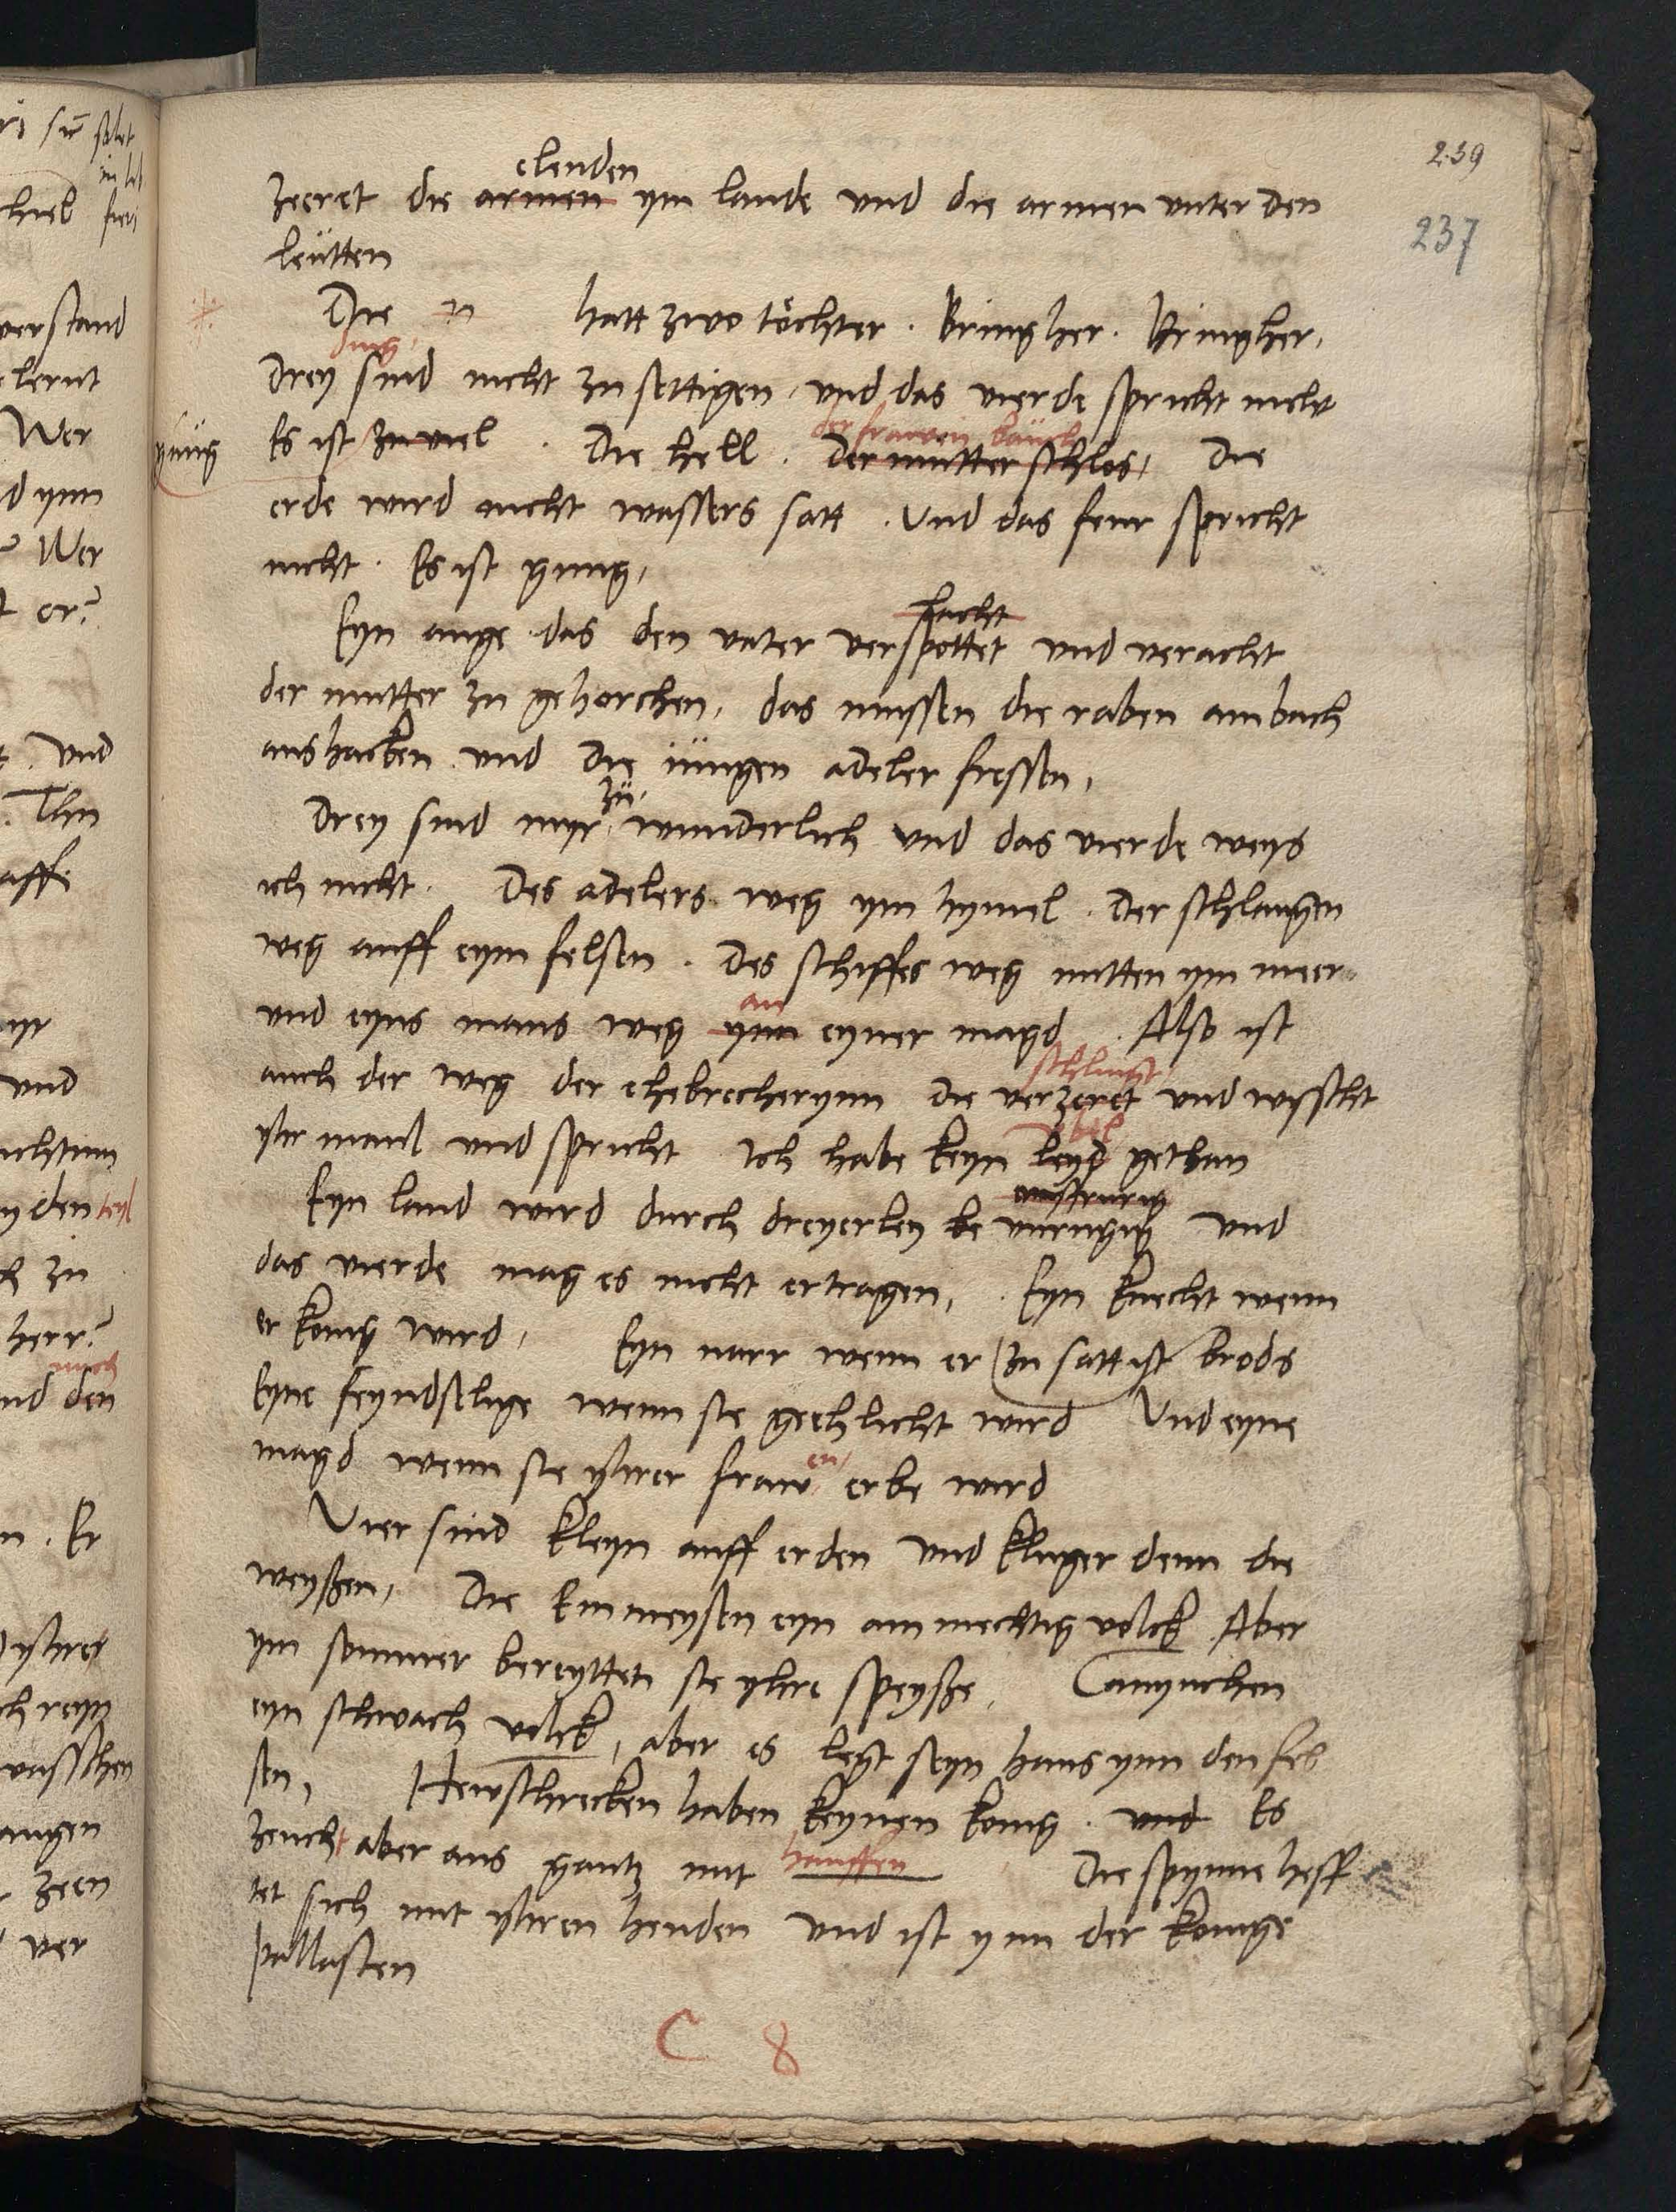 239
237
elenden
zeeret die armen ym lande vnd die armen vnter den
leütten
Die hatt zwo töchter . Bring her . Bring her,
ding,
Drey sind nicht zu settigen, vnd das vierde spricht nicht
der frawen bauch
gnüg Es ist zu viel . Die hell . Der mutter schlos, Die
erde wird nicht wassers satt . Vnd das feur spricht
nicht . Es ist gnung,
Eyn auge das den vater verspottet vnd veracht
der mutter zu gehorchen, das mussen die raben am bach
aus hacken vnd die iüngen adeler fressen,
zü,
Drey sind myr wunderlich vnd das vierde weys
ich nicht . Des adelers weg ym hymel . Der schlangen
weg auff eym felsen . Des schiffes weg mitten ym meer
an
vnd eyns mans weg ynn eyner magd . Also ist
schlingt
auch der weg der ehebrecherynn die verzeret vnd wisscht
vbel
yhr maul vnd spricht Ich habe keyn leyd gethan
Eyn land wird durch dreyerley be vnrugig vnd
das vierde mag es nicht ertragen, . Eyn knecht wenn
er konig wird, Eyn narr wenn er zu satt ist brods
Eyne feyndselige wenn sie geehlicht wird Vnd eyne
en,
magd wenn sie yhrer fraw erbe wird
Vier sind kleyn auff erden vnd kluger denn die
weyßen, Die Emmeysen eyn ammechtig volck Aber
ym sommer bereyttet sie yhre speyße, Canynchen
eyn schwach volck, aber es legt seyn haus ynn den fel
sen, Hewschrecken haben keynen konig . vnd Es
zeucht aber aus gantz mit hauffen , Die spynne heff
tet sich mit yhren henden vnd ist ynn der konige
pallasten
C 8